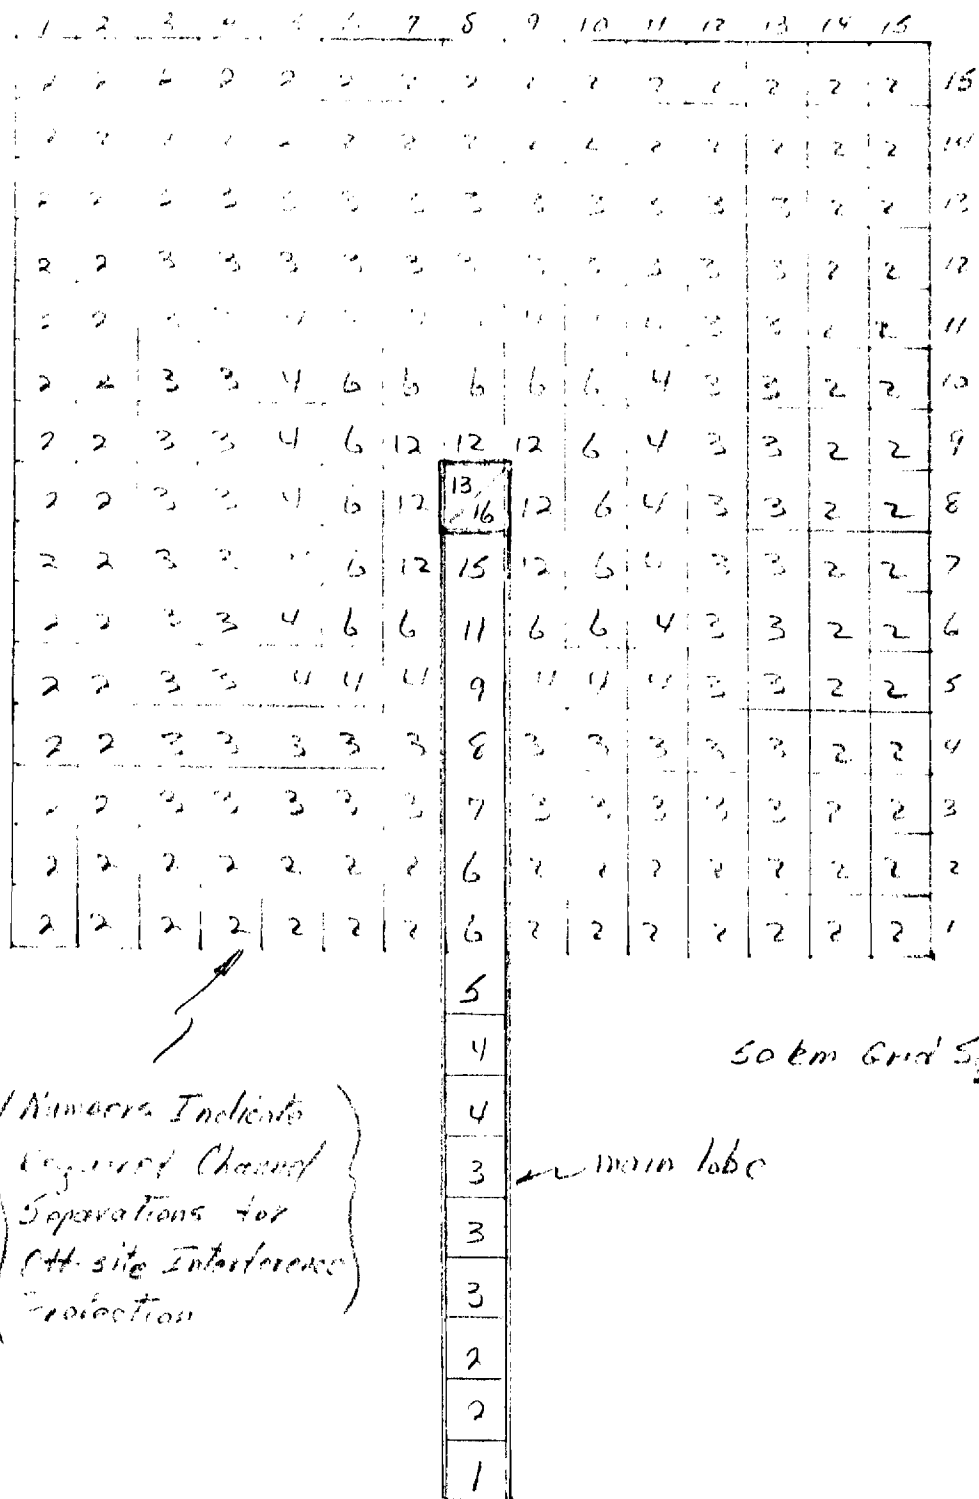 1 2 3 4 5 6 7 8 9 10 11 12 13 14 15
2 2 2 2 2 2 2 2 2 2 2 2 2 2 2 15
2 2 2 2 2 2 2 2 2 2 2 2 2 2 2 14
2 2 3 3 3 3 3 3 3 3 3 3 3 2 2 13
2 2 3 3 3 3 3 3 3 3 3 3 3 2 2 12
2 2 3 4 4 4 4 3 3 2 2 11
2 2 3 3 4 6 6 6 6 6 4 3 3 2 2 10
2 2 3 3 4 6 12 12 12 6 4 3 3 2 2 9
2 2 3 3 4 6 12 13/16 12 6 4 3 3 2 2 8
2 2 3 3 6 12 15 12 6 4 3 3 2 2 7
2 2 3 3 4 6 6 11 6 6 4 3 3 2 2 6
2 2 3 3 4 4 4 9 4 4 4 3 3 2 2 5
2 2 3 3 3 3 3 8 3 3 3 3 3 2 2 4
2 2 3 3 3 3 3 7 3 3 3 3 3 2 2 3
2 2 2 2 2 2 2 6 2 2 2 2 2 2 2 2
2 2 2 2 2 2 2 6 2 2 2 2 2 2 2 1
5
4
50 km Grid
4
3
main lobe
3
3
2
2
1
Numbers Indicate
Required Channel
Separations for
Off-site Interference
Protection